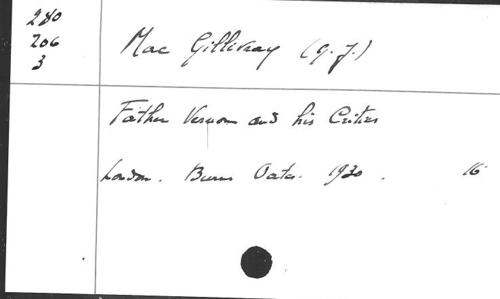 280
206
3
Mac Gillivray (G. J.)
Father Vernon and his Critics
London. Burns Oates. 1930. 16